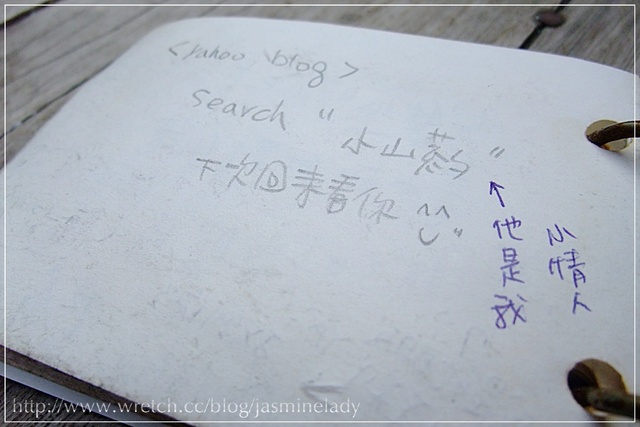 <yahoo blog>
Search "小山蒸勺"
下次回來看你 ^^"
↑他是我
小情人
http://www.wretch.cc/blog/jasminelady